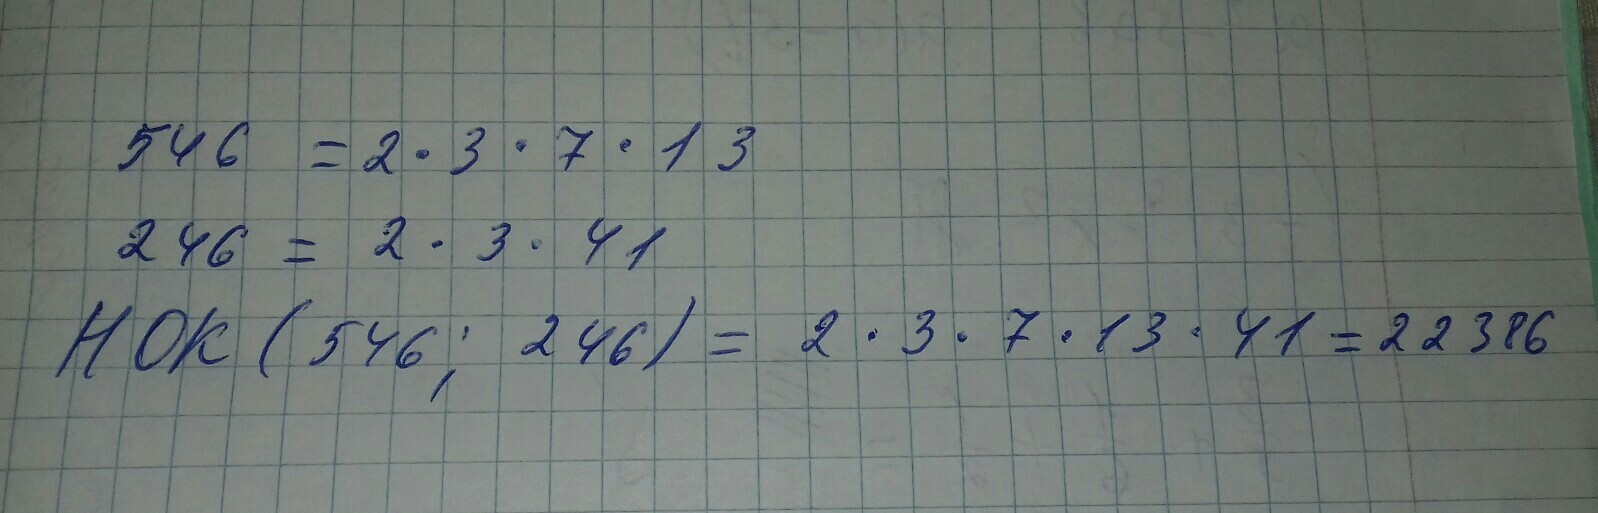 546 = 2 · 3 · 7 · 13
246 = 2 · 3 · 41
НОК (546; 246) = 2 · 3 · 7 · 13 · 41 = 22386